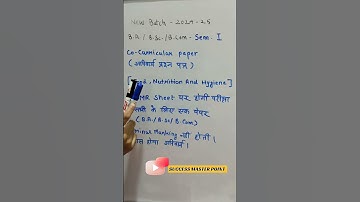 New Batch - 2024-25
B.A./B.Sc./B.Com - Sem - I
Co-Curricular paper
(अनिवार्य प्रश्न पत्र)
, Nutrition And Hygiene]
Sheet पर होगी परीक्षा
के लिए एक पेपर
(B.A./B.Sc/B.Com)
Minus Marking नही होगी।
होना अनिवार्य।
SUCCESS MASTER POINT